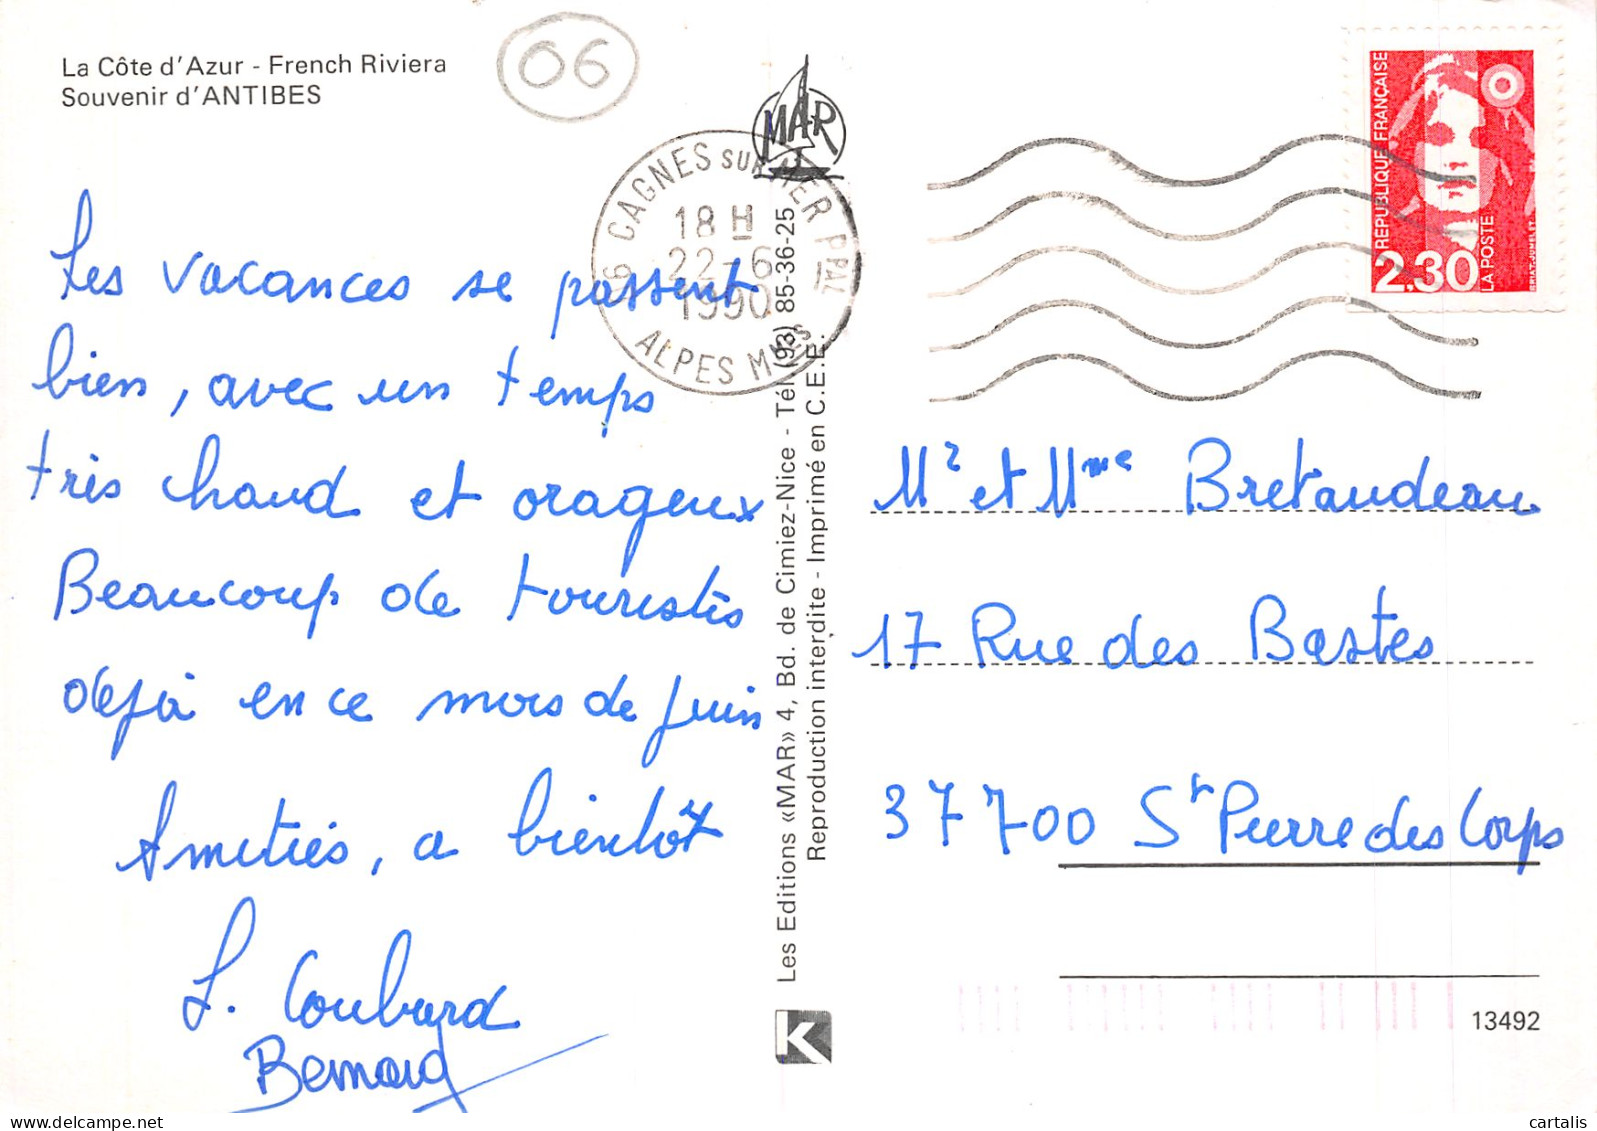 La Côte d'Azur - French Riviera
Souvenir d'ANTIBES
06
MAR
06 CAGNES SUR MER PPAL
18 H
22-6
1990
ALPES MMES
RÉPUBLIQUE FRANÇAISE
2,30
LA POSTE
BRIAT-JUMELET
Les vacances se passent
bien, avec un temps
très chaud et orageux
Beaucoup de touristes
déjà en ce mois de juin
Amitiés, a bientôt
L. Coubard
Bernard
Les Editions «MAR» 4, Bd. de Cimiez-Nice - Tél (93) 85-36-25
Reproduction interdite - Imprimé en C.E.E.
Mr et Mme Bretaudeau
17 Rue des Bastes
37700 St Pierre des Corps
K
13492
cartalis